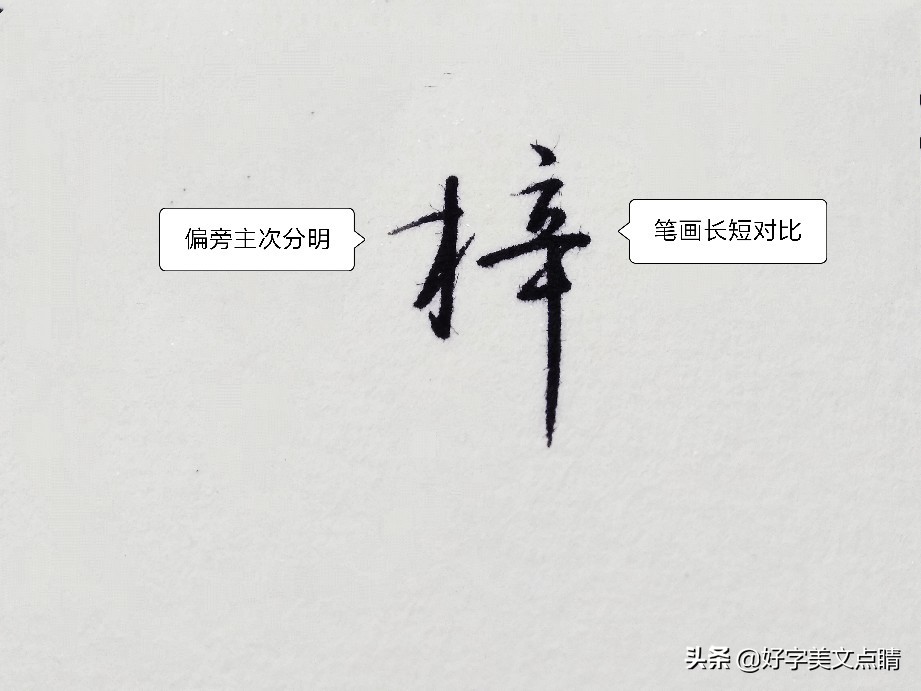 梓
偏旁主次分明
笔画长短对比
头条 @好字美文点睛